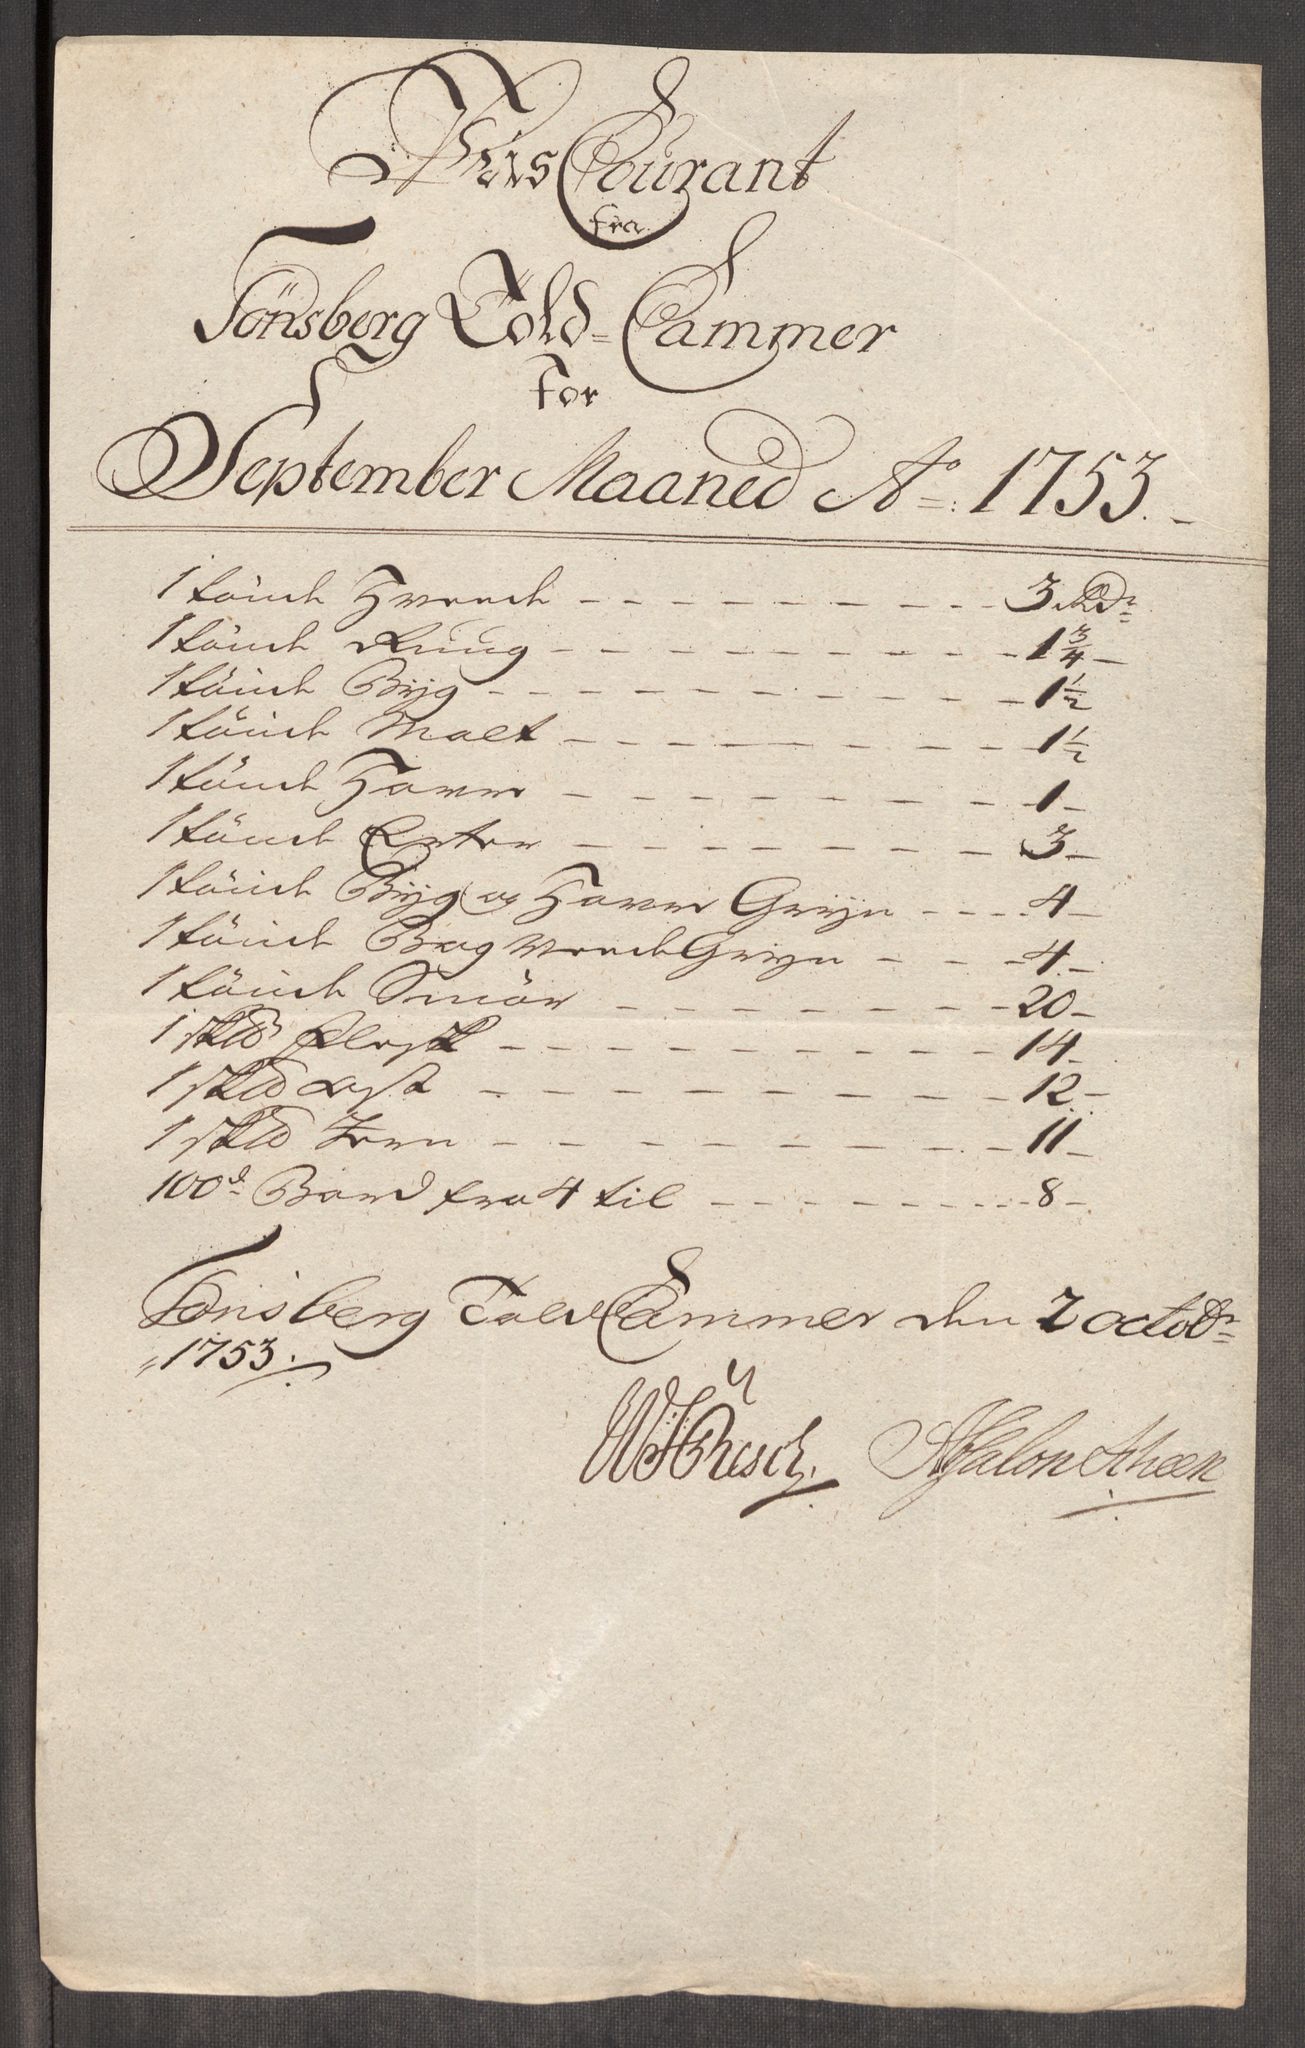 Priis Courant
fra
Tönsberg Told=Cammer
For
September Maaned Ao: 1753.
1 tönde Hveede - - - 3 Rdr
1 tönde Rüug - - - 1 3/4 -
1 tönde Bÿg - - - 1 1/2
1 tönde Malt - - - 1 1/2
1 tönde Havre - - - 1 -
1 tönde Erter - - - 3 -
1 tönde Bÿg og Havre Grÿn - - - 4 -
1 tönde Bog Hveede Grÿn - - - 4 -
1 tönde Smör - - - 20 -
1 sk℔ Flesk - - - 14 -
1 sk℔ Ost - - - 12 -
1 sk℔ Jern - - - 11 -
100d Bord fra 4 til - - - 8 -
Tönsberg Told Cammer den 2 octobr
1753.
Absalon Scheen